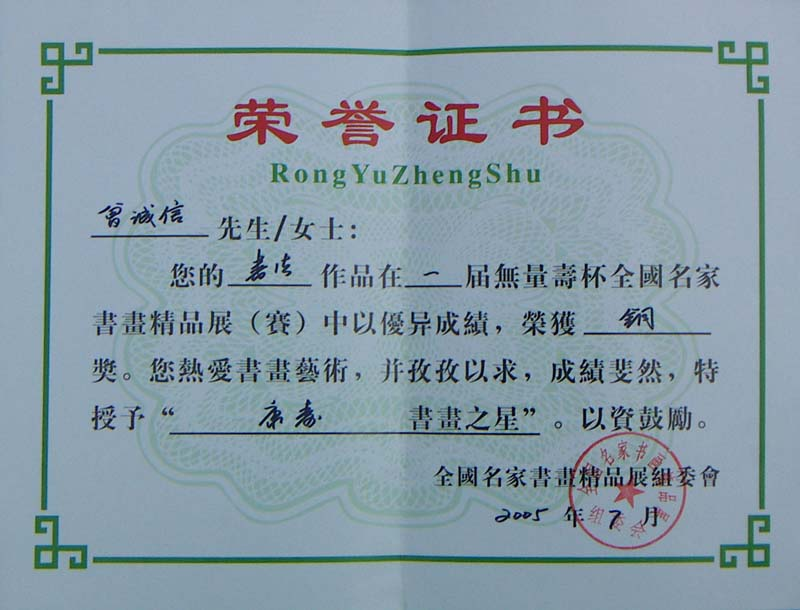 荣誉证书
RongYuZhengShu
曾诚信 先生/女士:
您的 書法 作品在 一 届無量壽杯全國名家
書畫精品展（賽）中以優异成績，榮獲 銅
獎。您熱愛書畫藝術，并孜孜以求，成績斐然，特
授予“ 康壽 書畫之星”。以資鼓勵。
全國名家書畫精品展組委會
2005 年 7 月